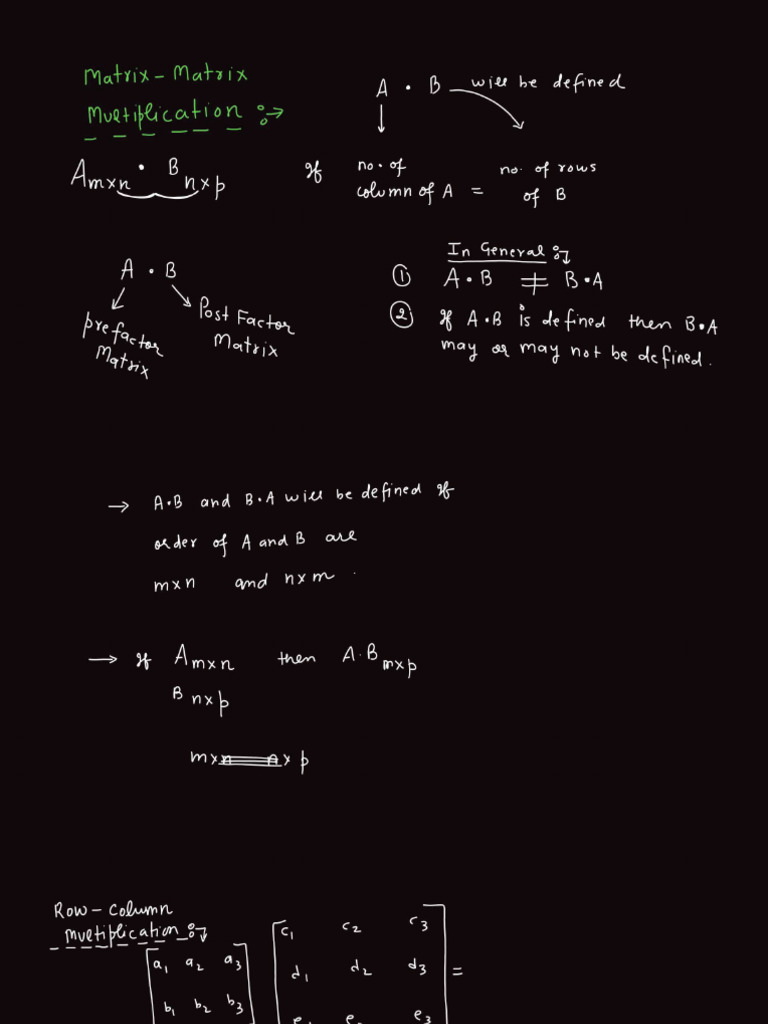 Matrix - Matrix
Multiplication :→
A · B will be defined
A m×n · B n×p
if no. of column of A = no. of rows of B
A · B
Prefactor Matrix
Post Factor Matrix
In General :↴
① A · B ≠ B · A
② if A · B is defined then B · A
may or may not be defined.
→ A·B and B·A will be defined if
order of A and B are
m×n and n×m.
→ if A m×n then A·B m×p
B n×p
m×n n×p
Row - Column
Multiplication :↴
a₁ a₂ a₃ c₁ c₂ c₃
b₁ b₂ b₃ d₁ d₂ d₃ =
e₁ e₂ e₃